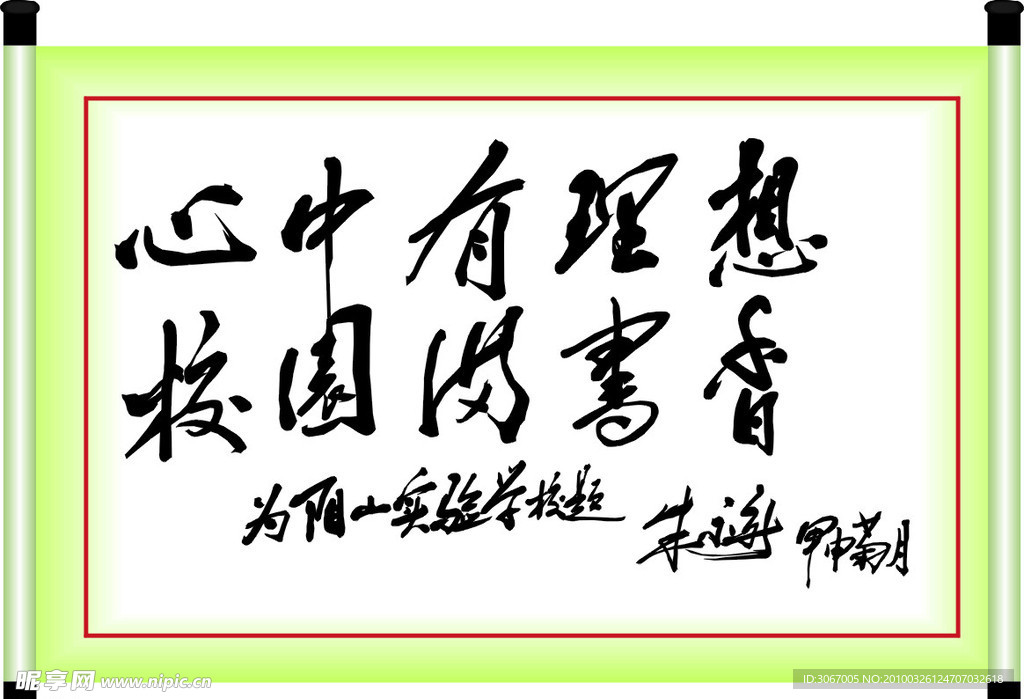 心中有理想
校園满書香
为阳山实验学校题
朱永新 甲申菊月
昵享网 www.nipic.cn
ID:3067005 NO:20100326124707032618